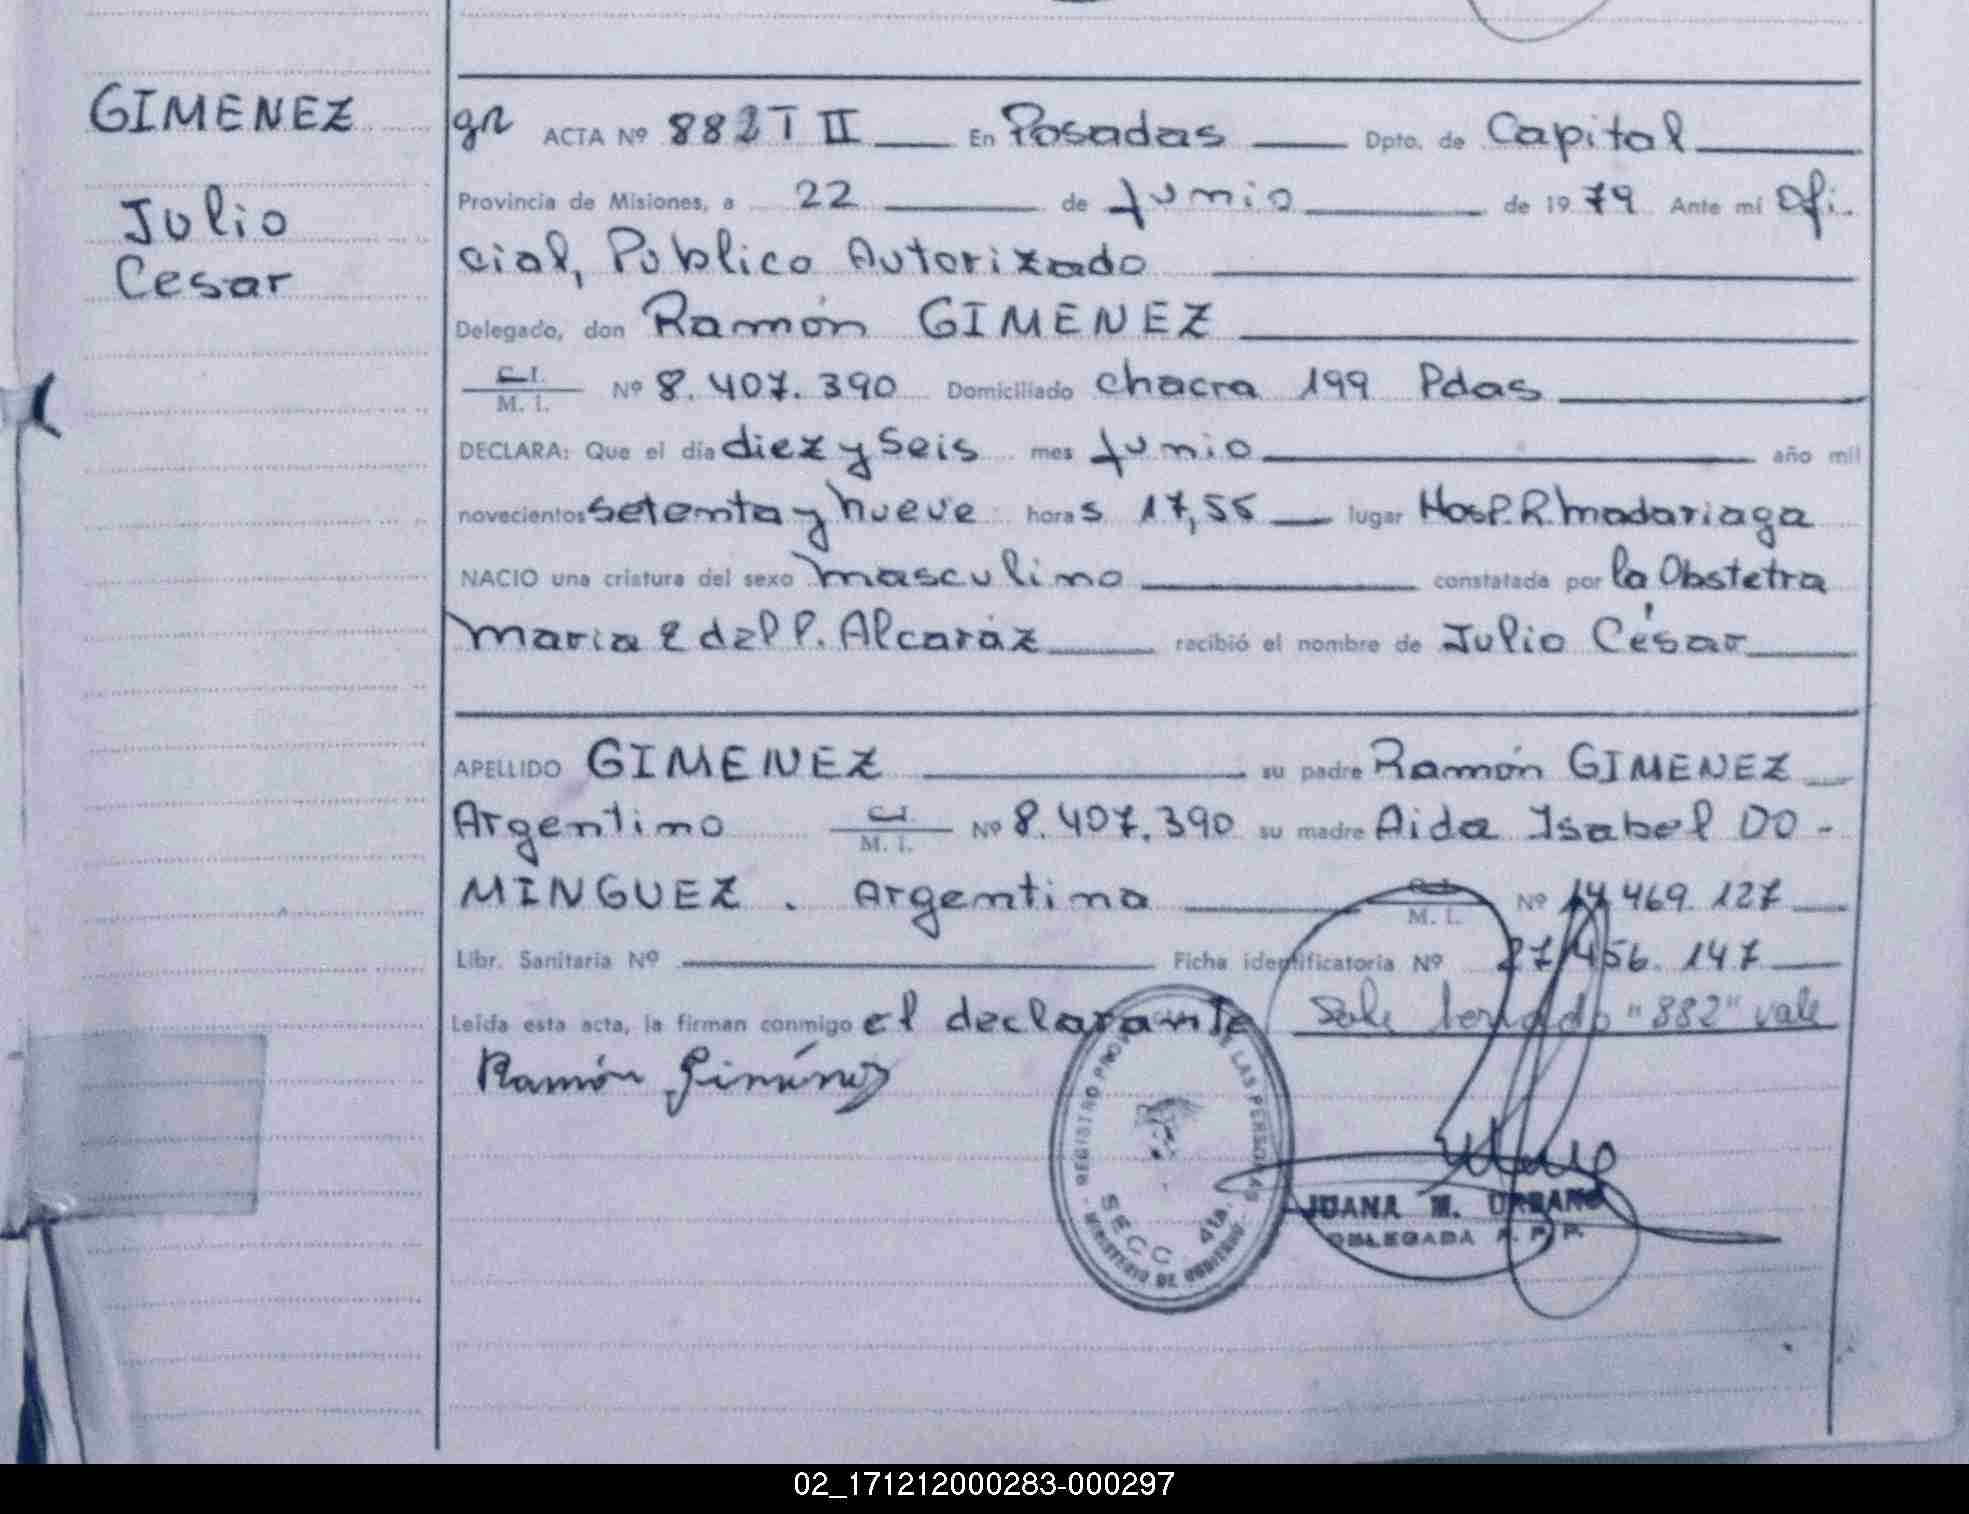 GIMENEZ
Julio
Cesar
gr ACTA Nº 882 T II En Posadas Dpto. de Capital
Provincia de Misiones, a 22 de Junio de 1979 Ante mí Ofi-
cial, Publico Autorizado
Delegado, don Ramón GIMENEZ
C.I. M. I. Nº 8.407.390 Domiciliado chacra 199 Pdas
DECLARA: Que el día diez y seis mes Junio año mil
novecientos setenta y nueve horas 17,55 lugar Hosp. R. Madariaga
NACIO una criatura del sexo masculino constatada por la Obstetra
Maria E del P. Alcaráz recibió el nombre de Julio César
APELLIDO GIMENEZ su padre Ramón GIMENEZ
Argentino C.I. M. I. Nº 8.407.390 su madre Aida Isabel DO-
MINGUEZ. Argentina C.I. M. I. Nº 14.469.127
Libr. Sanitaria Nº Ficha identificatoria Nº 27.456.147
Leída esta acta, la firman conmigo el declarante "882" vale
Ramón Giménez
REGISTRO PROV. DE LAS PERSONAS
SECC. 4ta.
MINISTERIO DE GOBIERNO
JUANA M. URBANO
DELEGADA R. P. P.
02_171212000283-000297